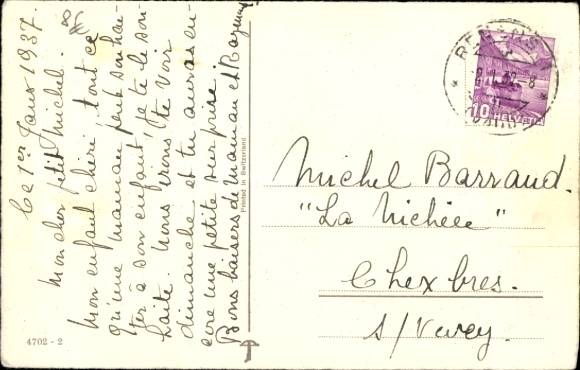 Ce 1er Janv 1937.
Mon cher petit Michel.
Mon enfant chéri, tout ce
qu'une Maman peut souhai-
ter à son enfant, je te le sou-
haite. Nous irons te voir
dimanche et tu auras en-
core une petite surprise.
Bons baisers de Maman et
4702 - 2
Printed in Switzerland
HELVETIA
10
Michel Barraud.
"La Nichée"
Chexbres.
s/Vevey.